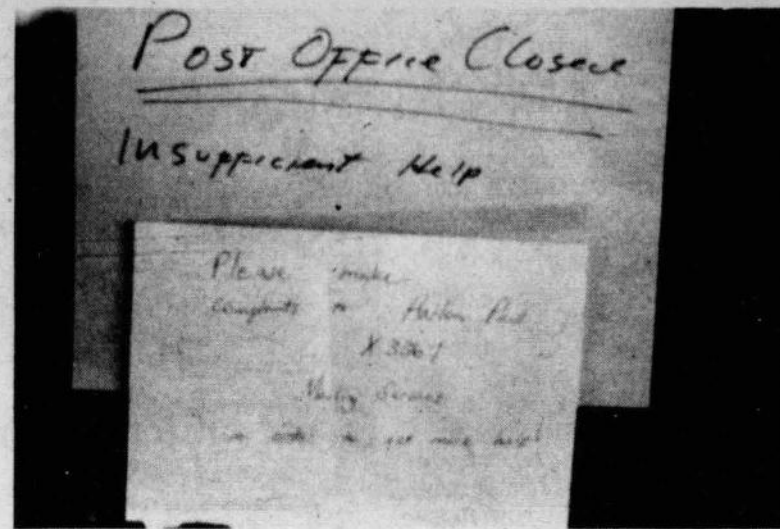 Post Office Closed
Insufficient Help
Please make
complaints to
Mailing Services
in order to get more help!